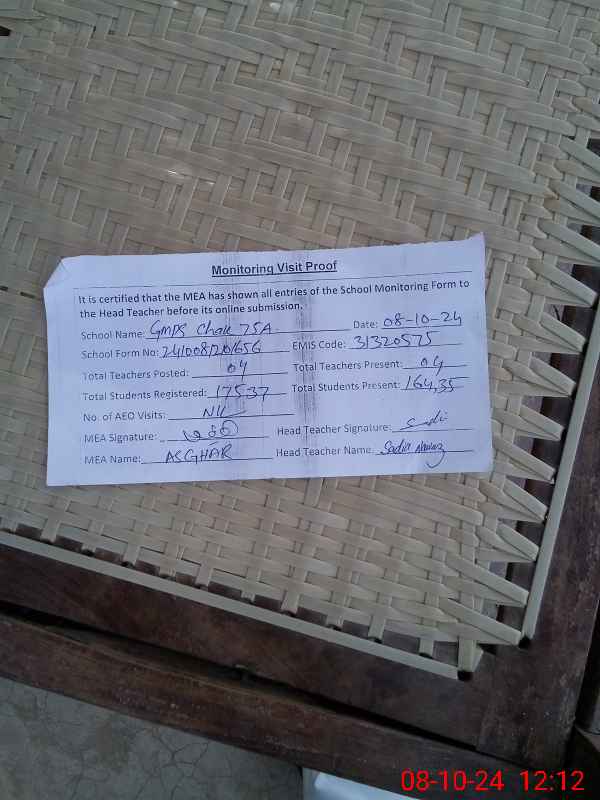 Monitoring Visit Proof
It is certified that the MEA has shown all entries of the School Monitoring Form to
the Head Teacher before its online submission.
School Name: GMPS Chak 75A Date: 08-10-24
School Form No: 241008201656 EMIS Code: 31320575
Total Teachers Posted: 04 Total Teachers Present: 04
Total Students Registered: 175,37 Total Students Present: 164,35
No. of AEO Visits: Nil
MEA Signature: Head Teacher Signature:
MEA Name: ASGHAR Head Teacher Name: Sadia Nawaz
08-10-24 12:12